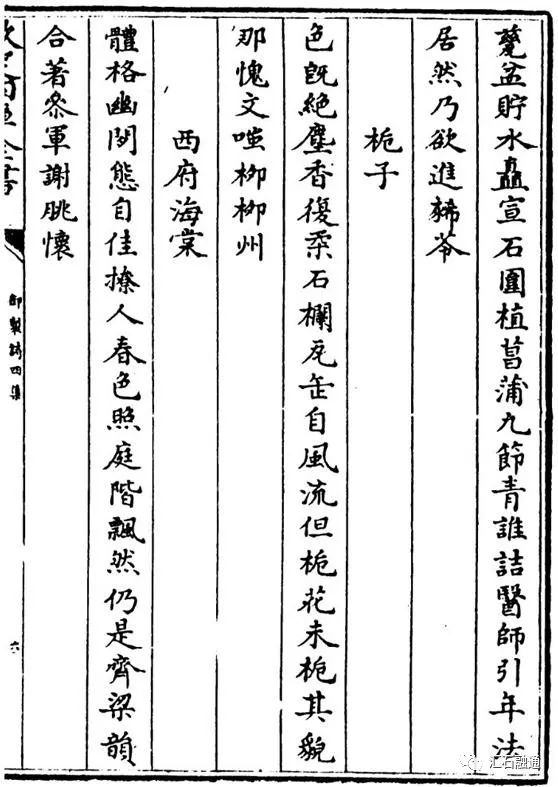 甃盆貯水矗宣石圍植菖蒲九節青誰詰醫師引年法
居然乃欲進豨苓
梔子
色既絶塵香復柔石欄瓦缶自風流但梔花未梔其貌
那愧文嗤柳柳州
西府海棠
體格幽閒態自佳撩人春色照庭階飄然仍是齊梁韻
合著叅軍謝朓懷
御製詩四集
汇石融通